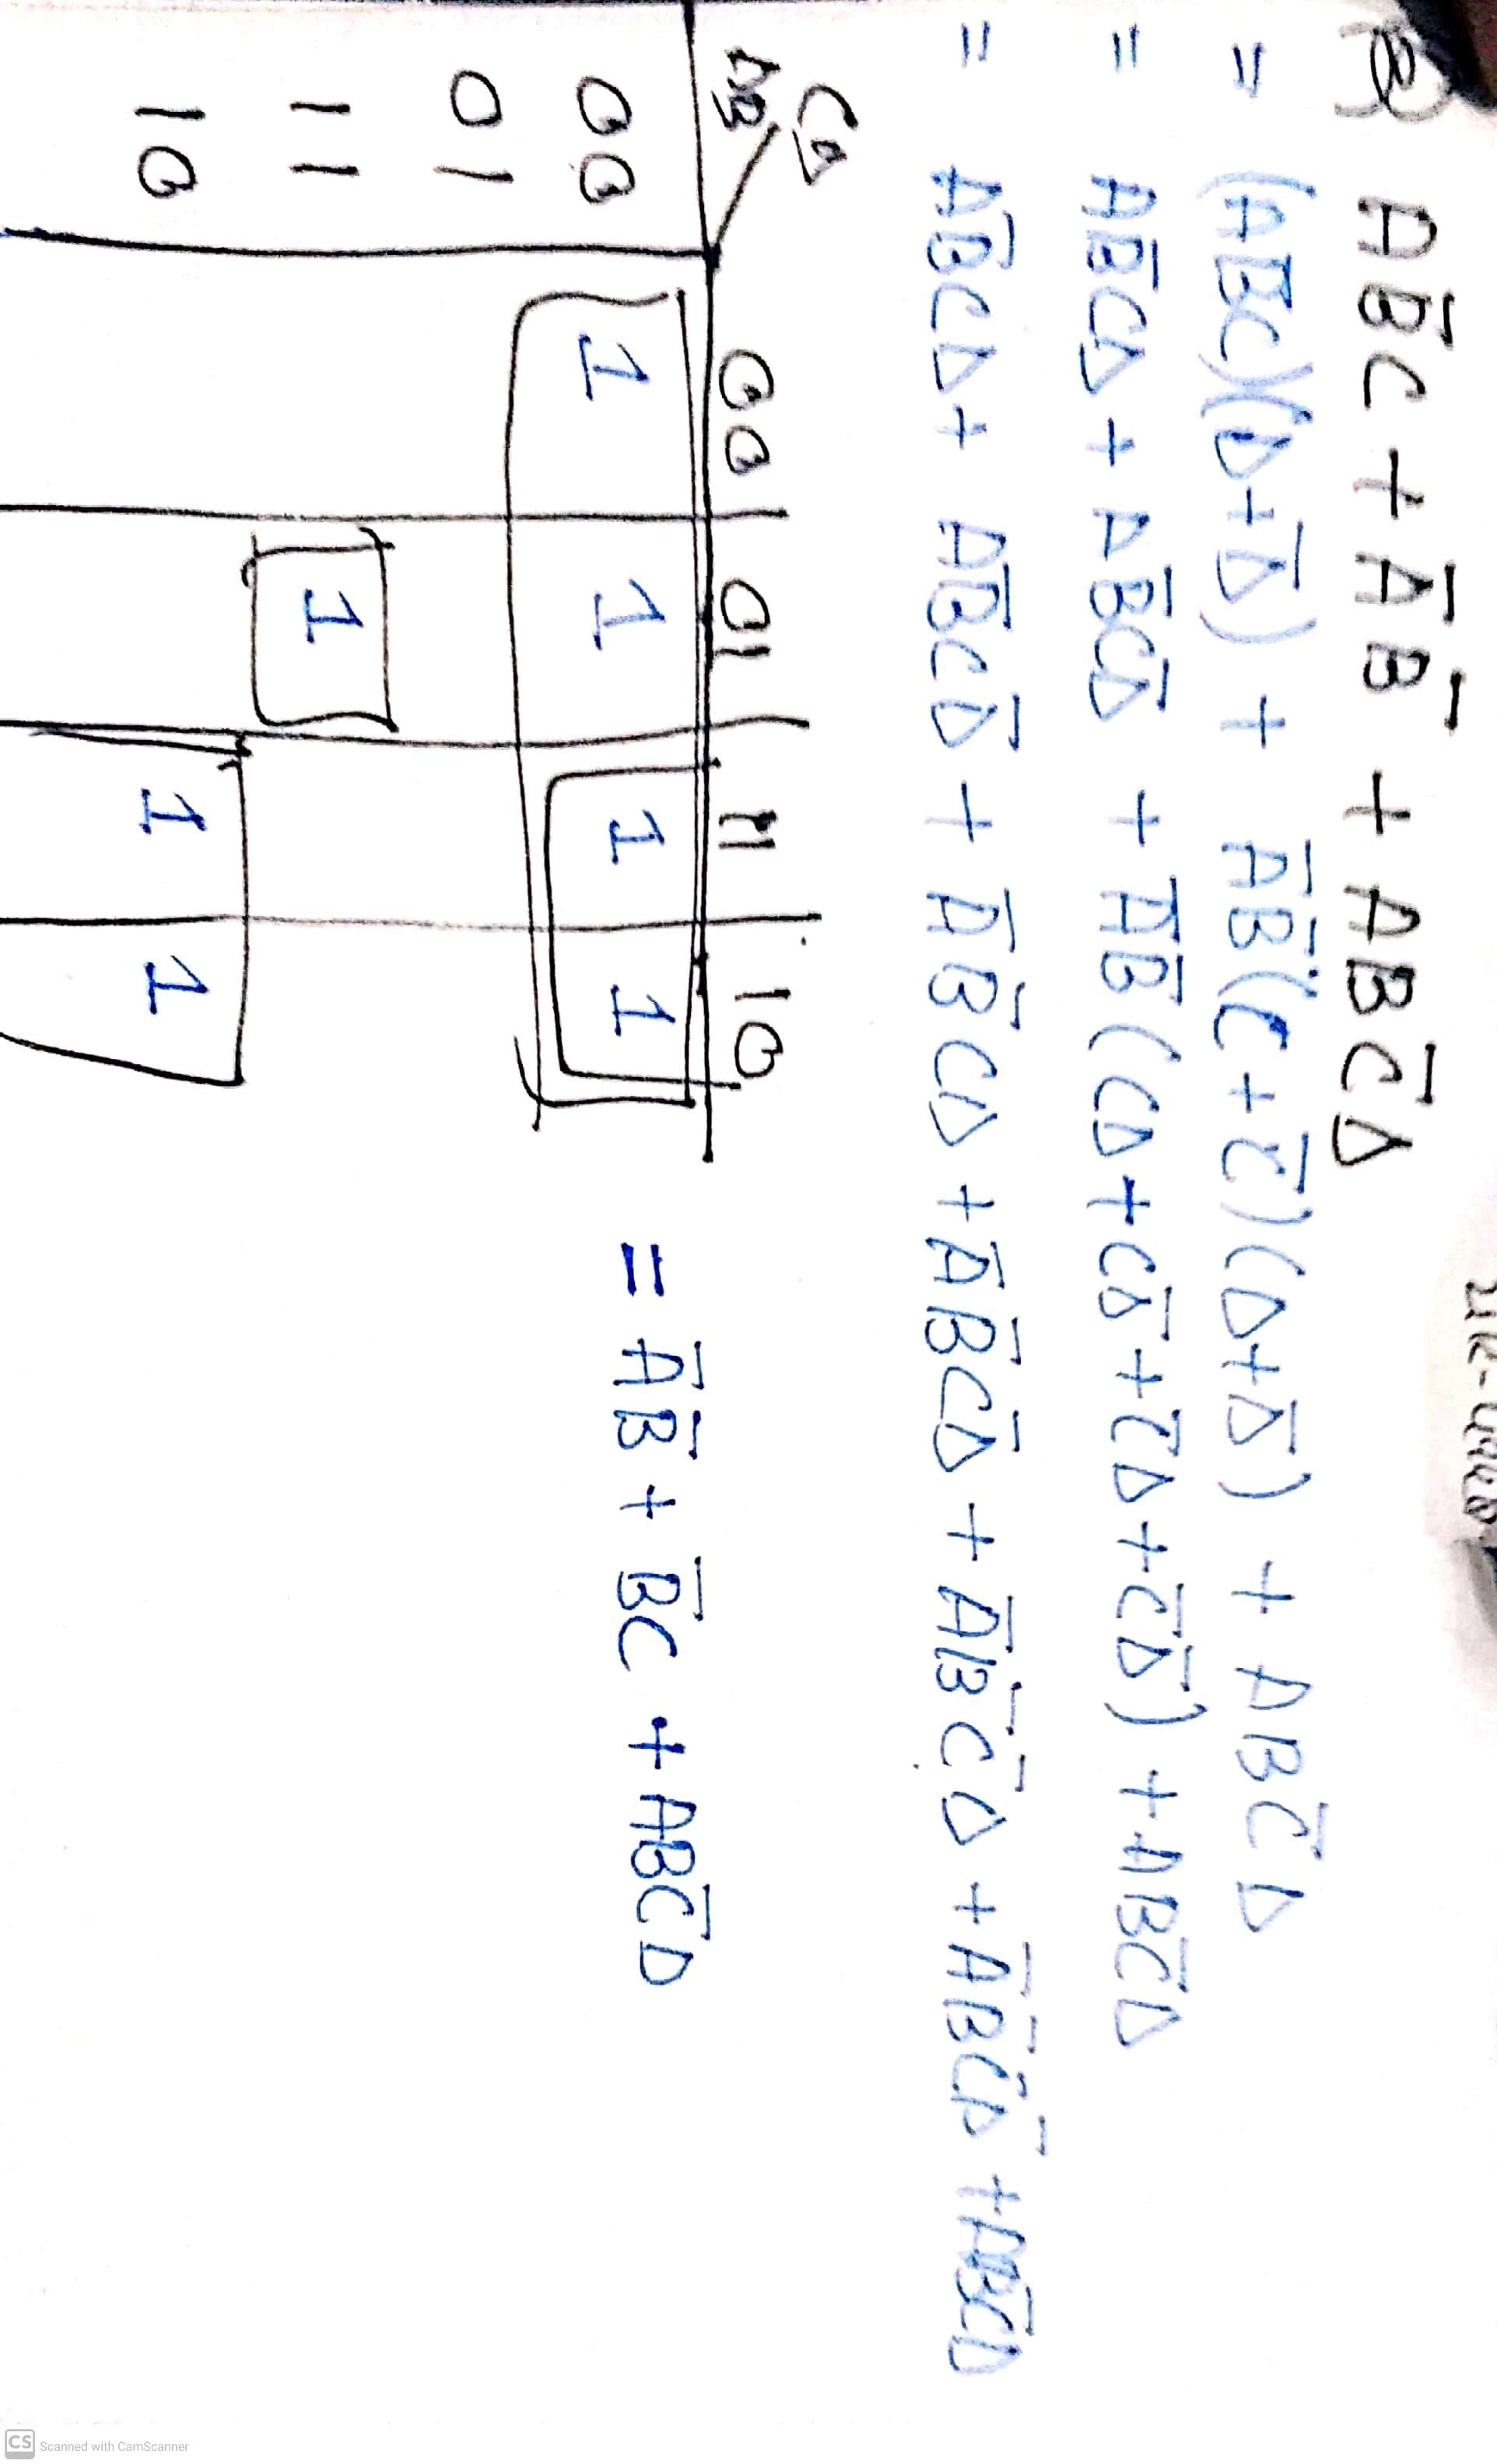 2) AB̅C + A̅B̅ + ABC̅D
= (AB̅C)(D+D̅) + A̅B̅(C+C̅)(D+D̅) + ABC̅D
= AB̅CD + AB̅CD̅ + A̅B̅(CD+CD̅+C̅D+C̅D̅) + ABC̅D
= AB̅CD + AB̅CD̅ + A̅B̅CD + A̅B̅CD̅ + A̅B̅C̅D + A̅B̅C̅D̅ + ABC̅D
CD
AB 00 01 11 10
00 1 1 1 1 = A̅B̅ + B̅C + ABC̅D
01
11 1
10 1 1
CS Scanned with CamScanner